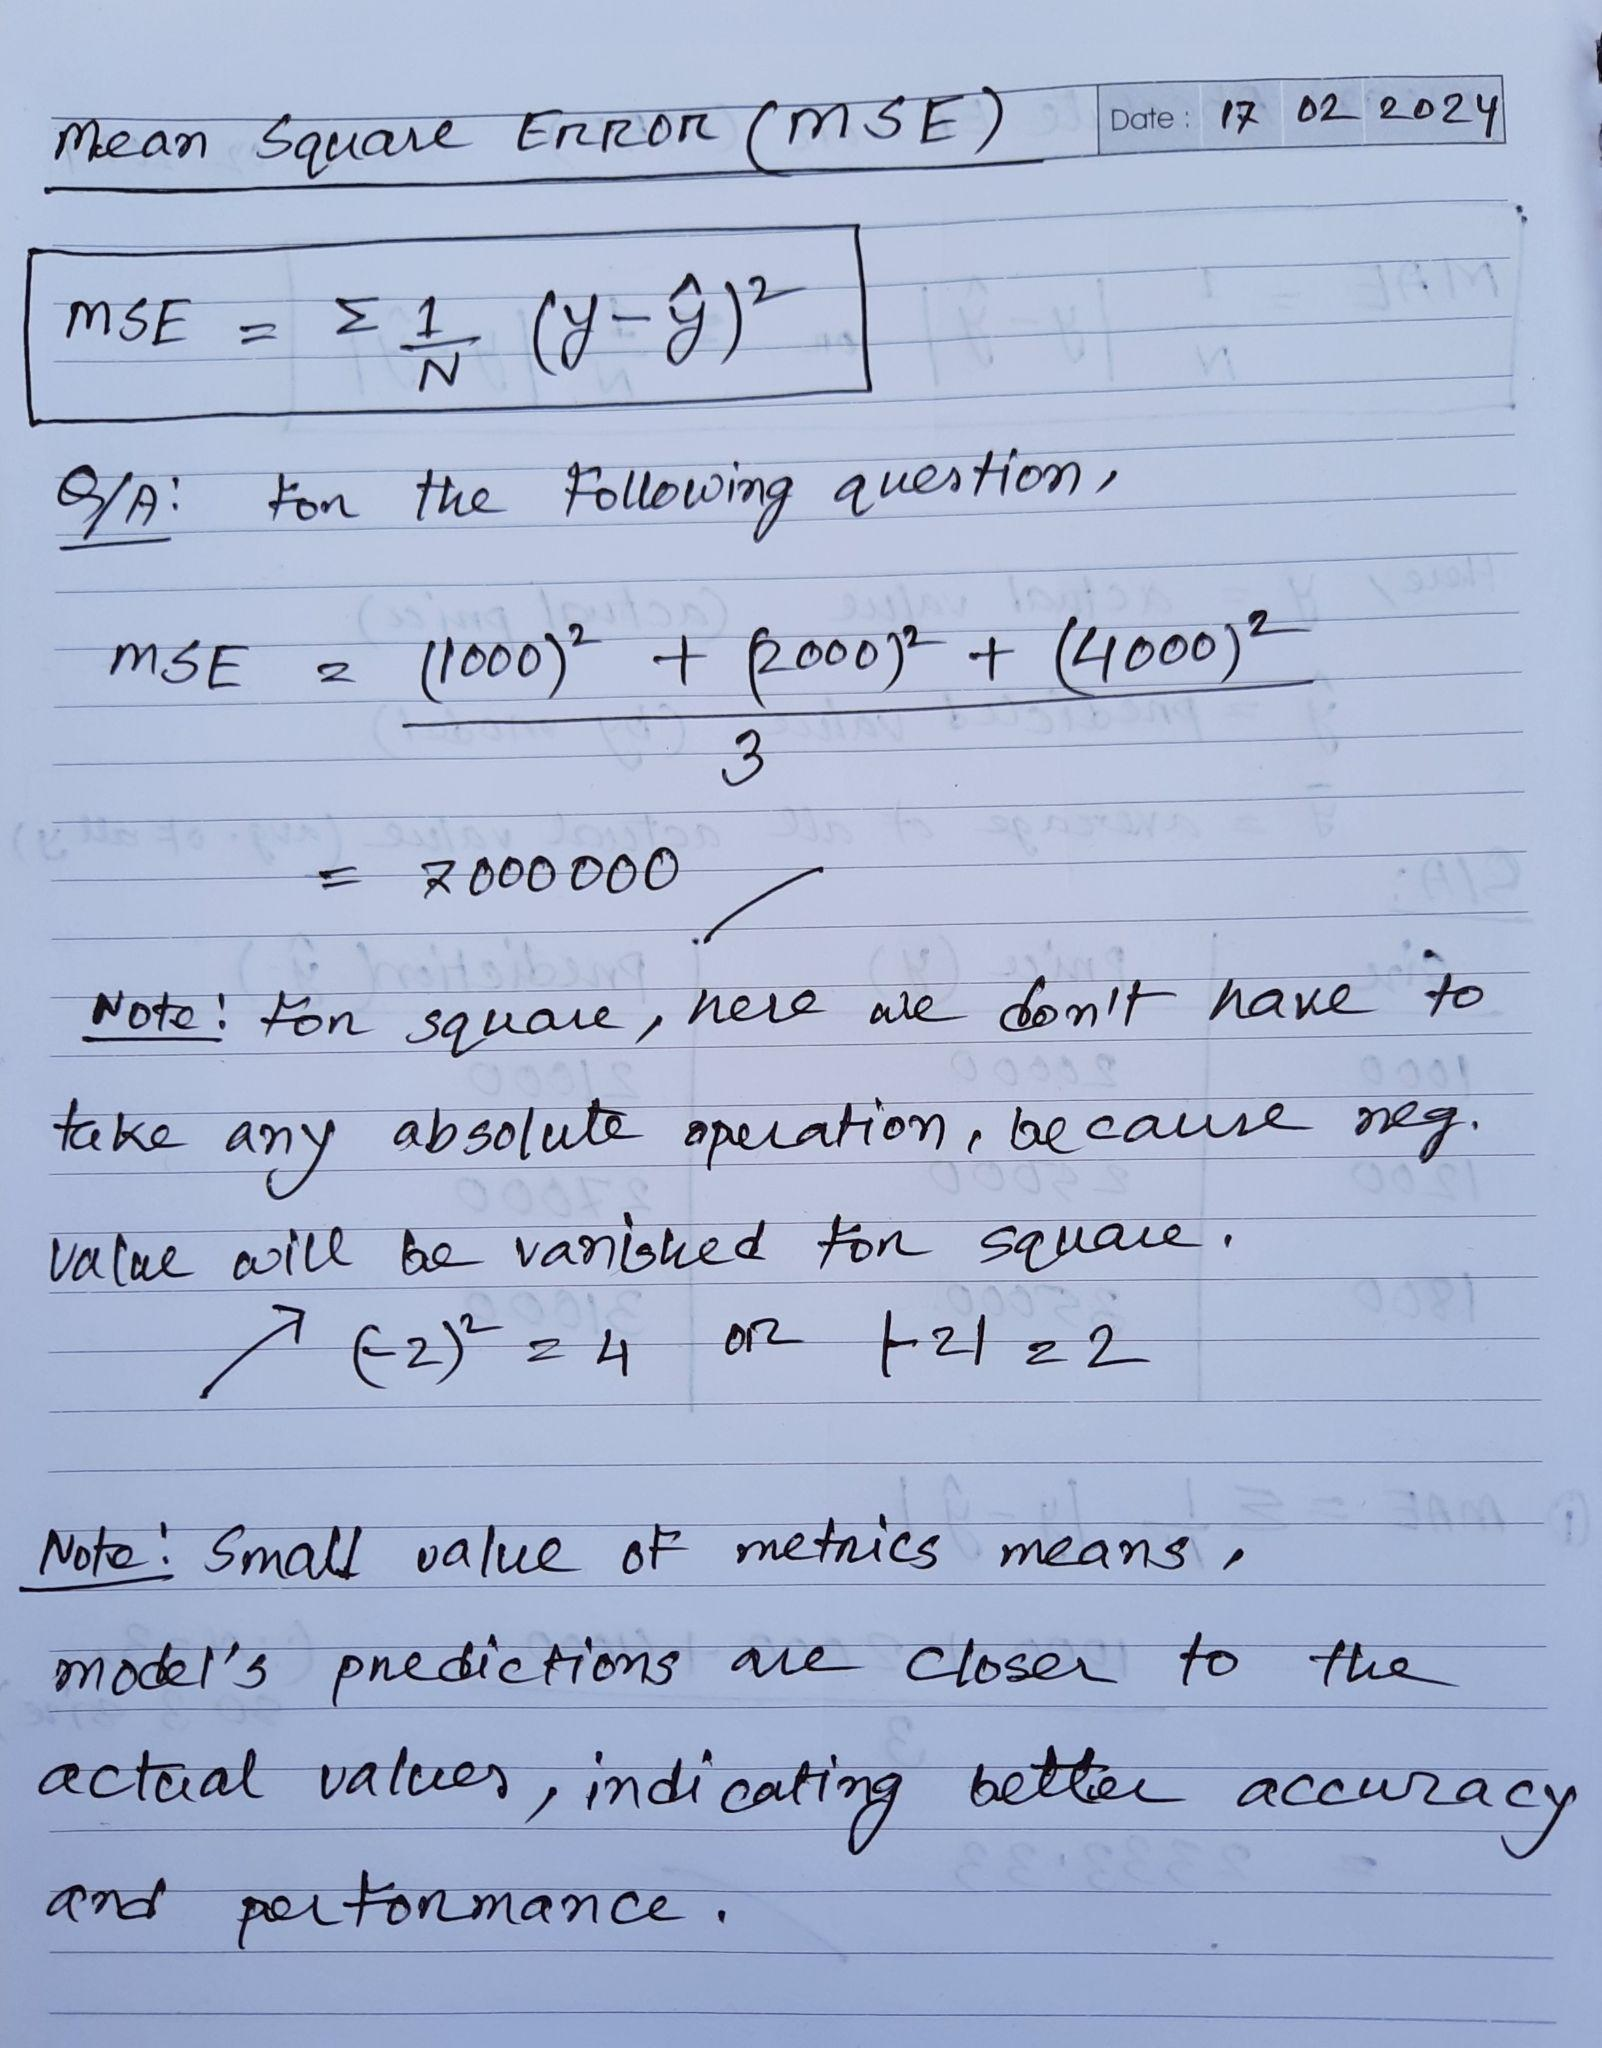 Mean Square Error (MSE)
Date: 17 02 2024
MSE = Σ 1/N (y-ŷ)²
Q/A: For the following question,
MSE = (1000)² + (2000)² + (4000)²
3
= 7000000
Note: For square, here we don't have to
take any absolute operation, because neg.
value will be vanished for square.
(-2)² = 4 or |-2| = 2
Note: Small value of metrics means,
model's predictions are closer to the
actual values, indicating better accuracy
and performance.